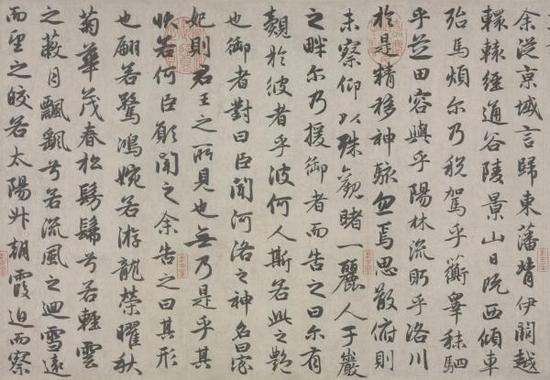 余從京城言歸東藩背伊闕越
轘轅經通谷陵景山日既西傾車
殆馬煩尔乃稅駕乎蘅皋秣駟
乎芝田容與乎陽林流眄乎洛川
於是精移神駭忽焉思散俯則
未察仰以殊觀睹一麗人于巖
之畔尔乃援御者而告之曰尔有
覿於彼者乎彼何人斯若此之艷
也御者對曰臣聞河洛之神名曰宓
妃則君王之所見也無乃是乎其
狀若何臣願聞之余告之曰其形
也翩若驚鴻婉若游龍榮曜秋
菊華茂春松髣髴兮若輕雲
之蔽月飄飖兮若流風之迴雪遠
而望之皎若太陽升朝霞迫而察